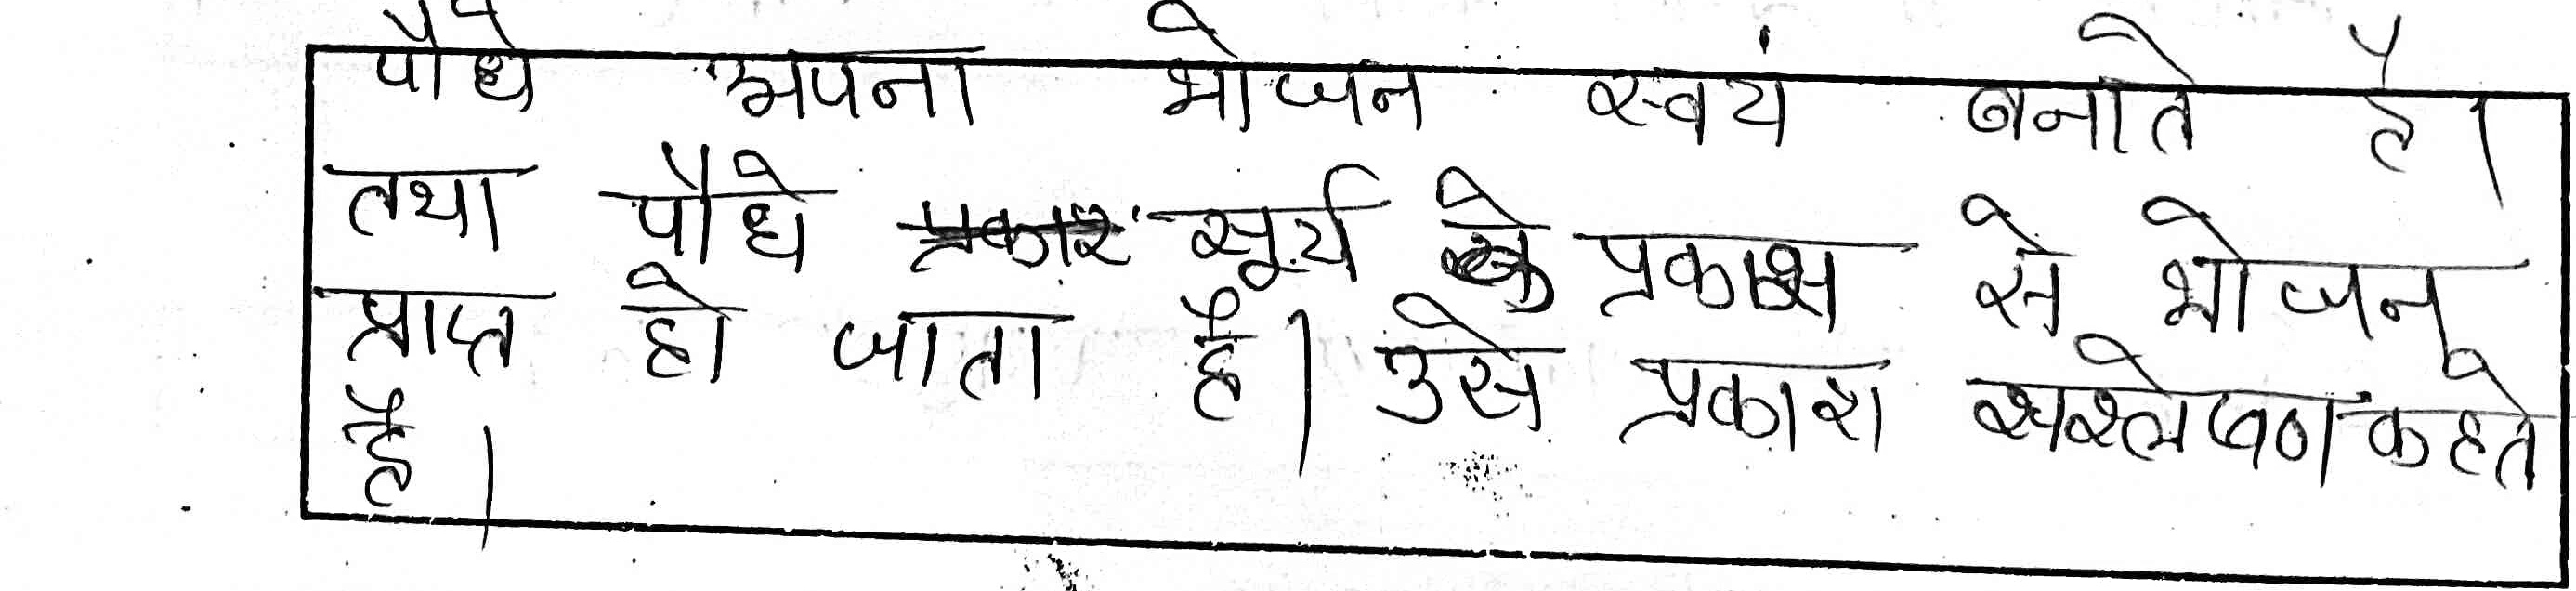 पौधे अपना भोजन स्वयं बनाते है।
तथा पौधे सूर्य के प्रकाश से भोजन
प्राप्त हो जाता है। उसे प्रकाश सश्लेषण कहते
है।